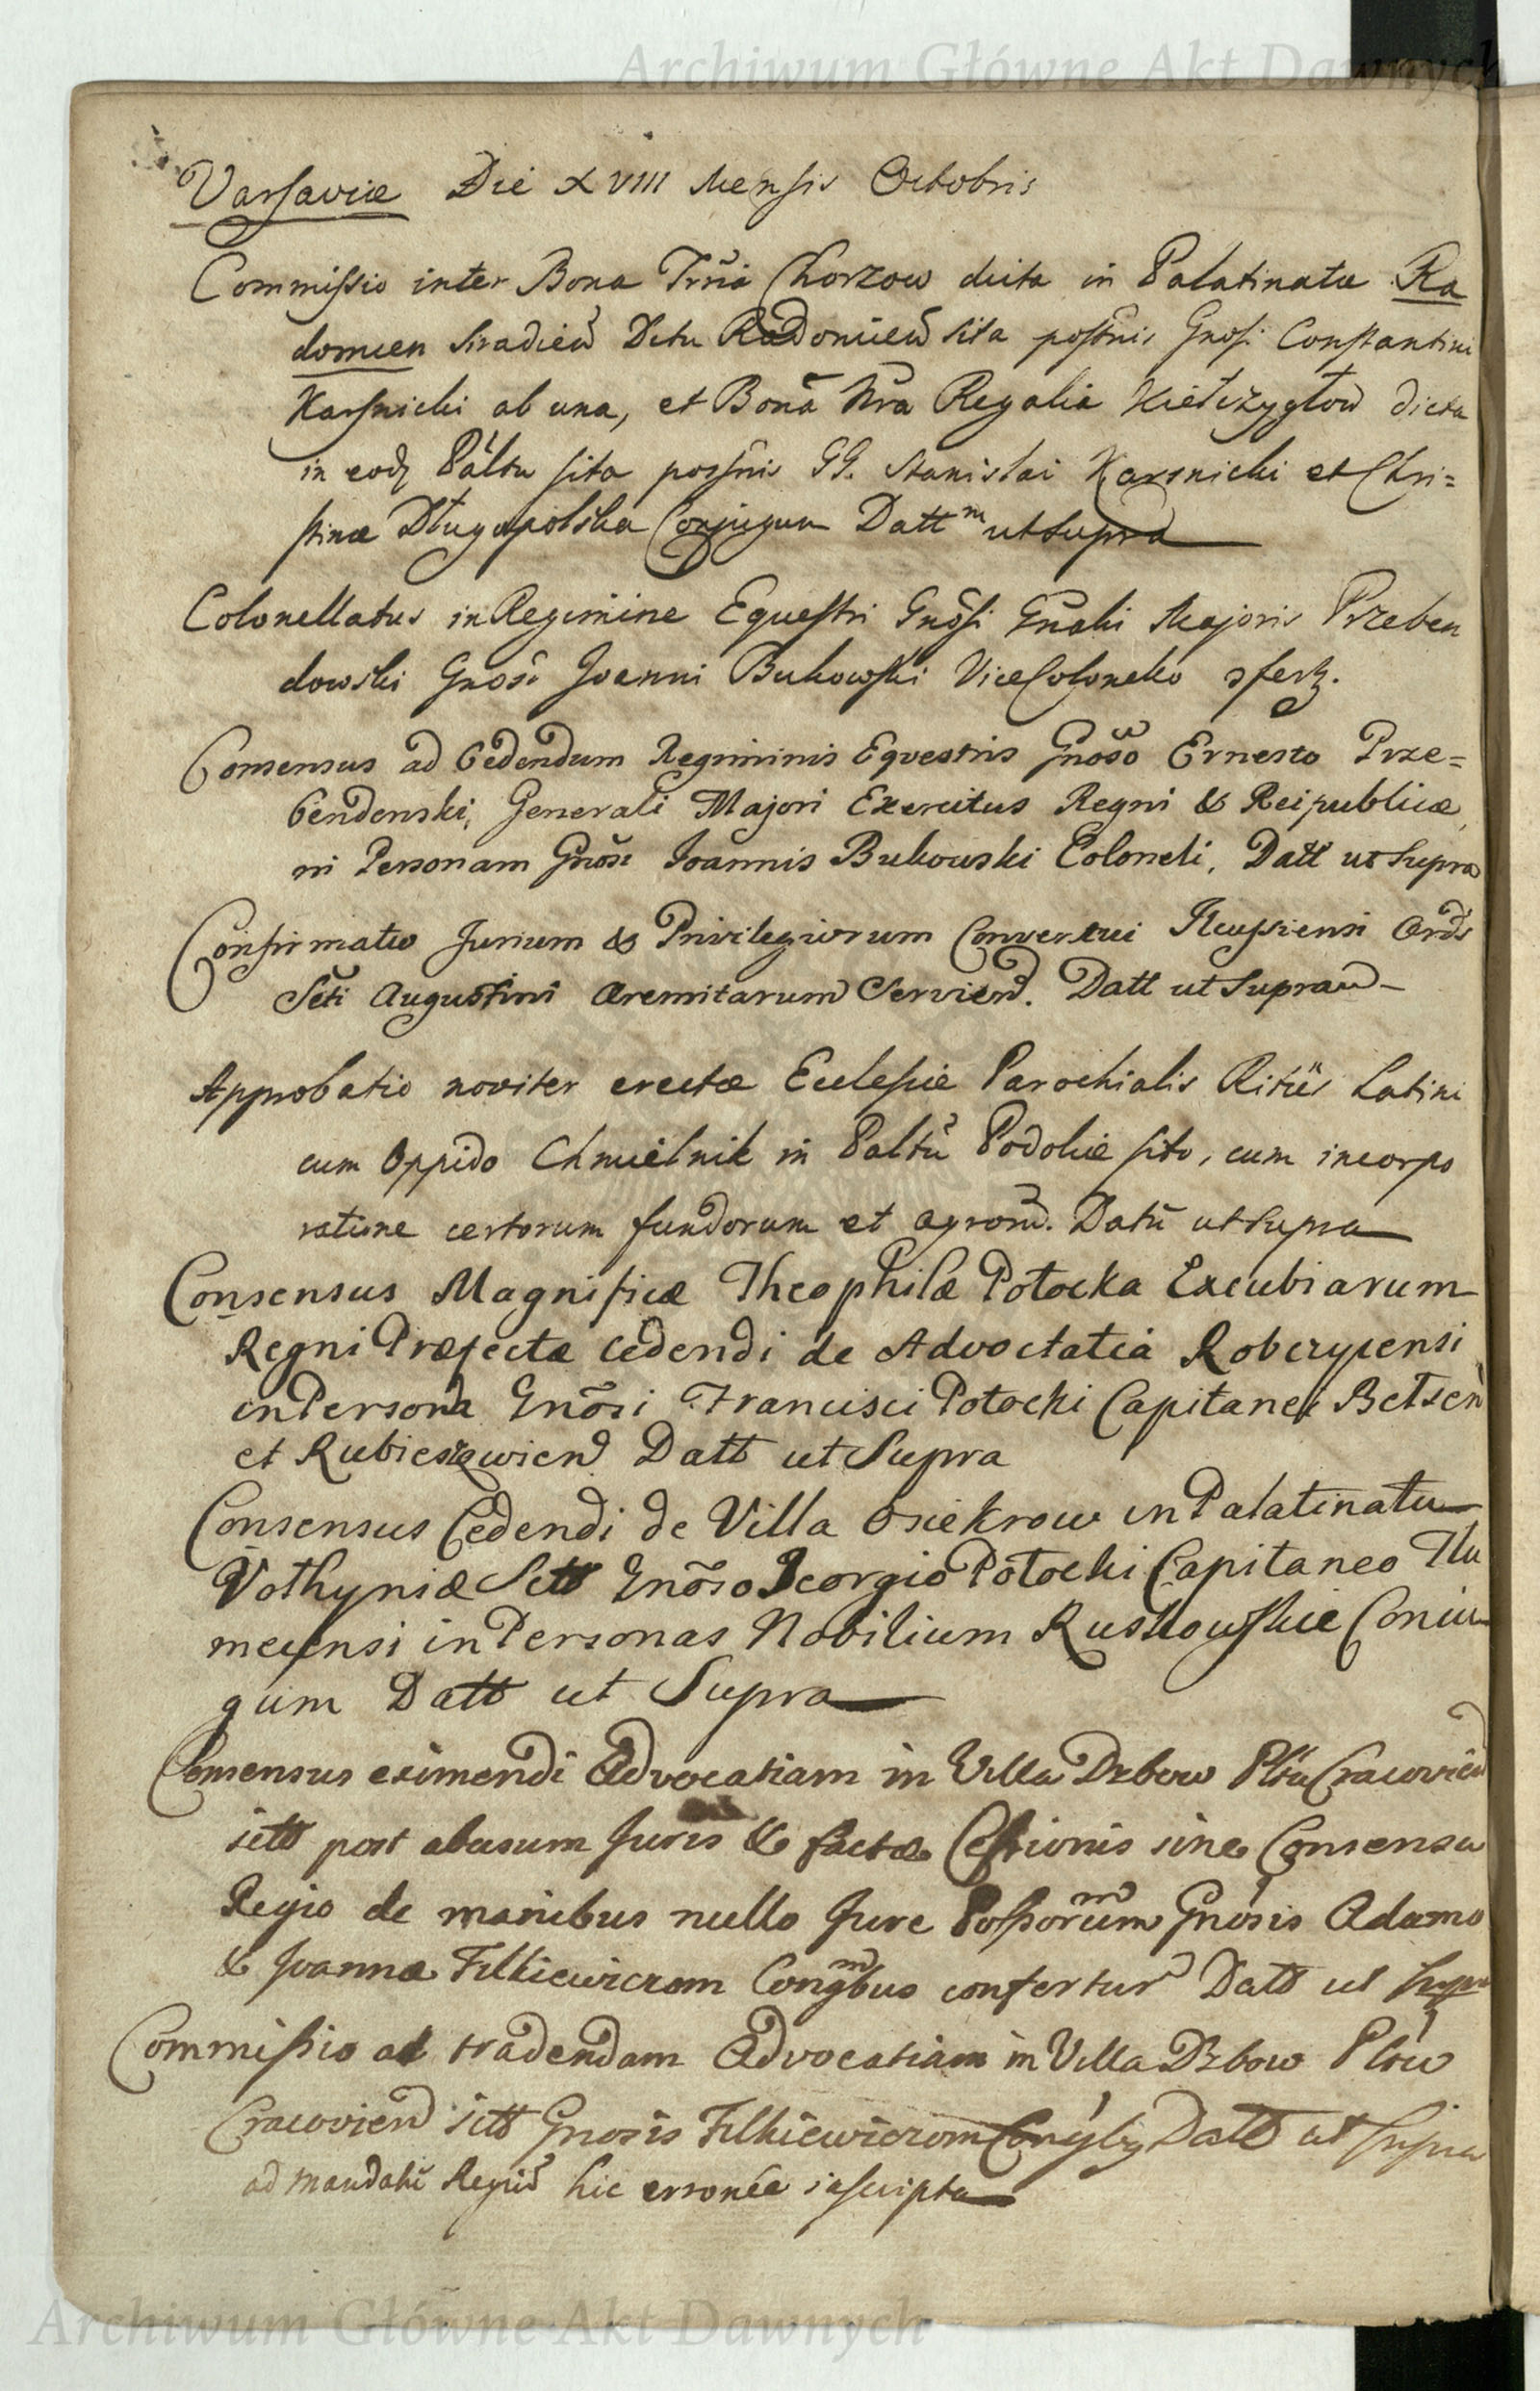 Archiwum Główne Akt Dawnych
Varsaviæ Die XVIII Mensis Octobris
Commissio inter Bona Trria Chorzow dicta in Palatinatu Ra
domien Siradień Dctu Radomień sita possnis Gnosi Constantini
Karsnicki ab una, et Bona Nra Regalia Kiełczygłow dicta
in eodz Paltu sita possnis GG. Stanislai Karsnicki et Chri=
stinæ Długopolska Conjugum Dattm ut supra
Colonellatus in Regimine Equestri Gnosi Gnali Majoris Przeben
dowski Gnoso Joanni Bukowski ViceColonello
Consensus ad Cedendum Regiminis Equestris Gnoso Ernesto Prze=
bendowski, Generali Majori Exercitus Regni & Reipublicæ,
in Personam Gnosi Ioannis Bukowski Coloneli, Datt ut Supra
Confirmatio Jurium & Privilegiorum Conventui Ilcussiensi Ords
Scti Augustini Æremitarum Serviend. Datt ut Supra
Approbatio noviter erectæ Eclesiæ Parochialis Ritûs Latini
cum Oppido Chmielnik in Paltu Podoliæ sito, cum incorpo
ratione certorum fundorum et agrorū. Datū ut supra
Consensus Magnificæ Theophilæ Potocka Excubiarum
Regni Præfectæ cedendi de Advoctatia
in Persona Gnosi Francisci Potocki Capitanei Betsen
et Rubieszowien Datt ut Supra
Consensus Cedendi de Villa Osiekrow in Palatinatu
Vothyniæ Sett Gnoso Georgio Potocki Capitaneo Tłu
mecensi in Personas Nobilium Ruskowskie Coniu
gum Datt ut Supra
Consensus eximendi Advocatiam in Villa Dzbow Pltu Cracovień
sitt post abusum Juris & factæ Cessionis sine Consensu
Regio de manibus nullo Jure Possorum Gnosis Adamo
& Joannæ Filkiewiczom Congbus confertur Datt ut supra
Commissio ad tradendam Advocatiam in Villa Dzbow Pltu
Cracovien sitt Gnosis Filkiewiczom Datt ut supra
ad mandatū Regiū hic erronée inscripta
Archiwum Główne Akt Dawnych